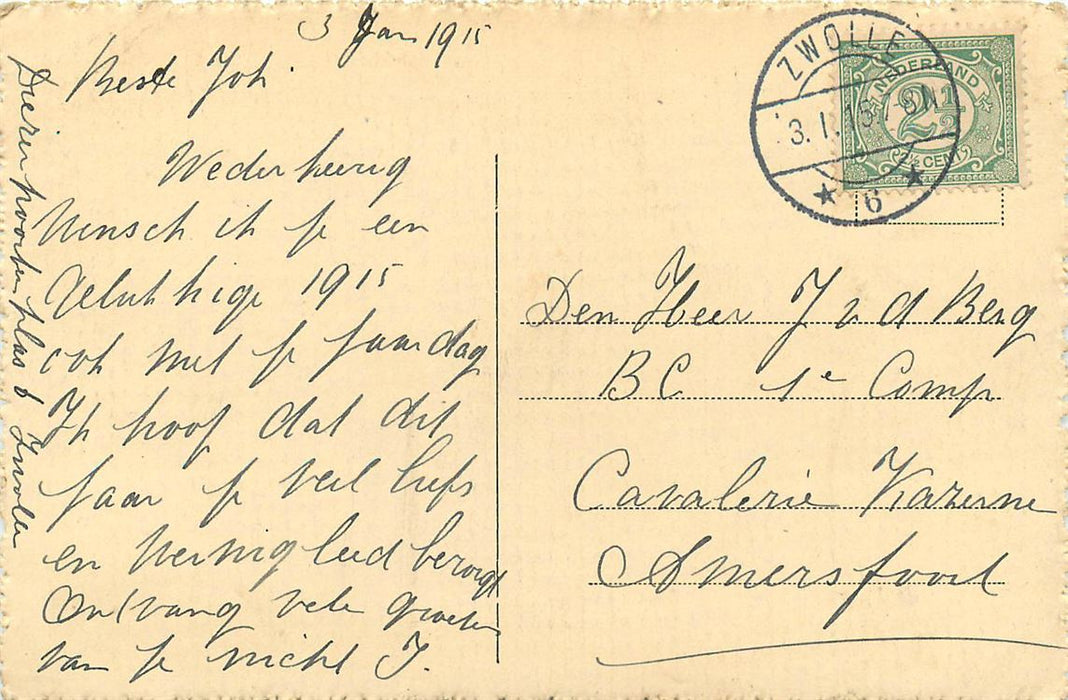 3 Jan 1915
Beste Joh.
Wederkeerig
Wensch ik je een
Gelukkige 1915
ook met je jaardag
Ik hoop dat dit
jaar je veel liefs
en weinig leed bezorgt
Ontvang vele groeten
van je nicht J.
Dierenhoorten plas 6 Zwolle
ZWOLLE
3.1.15. 7-8N
6
NEDERLAND
2½
2½ CENT
Den Heer J v d Berg
BC 1e Comp
Cavalerie Kazerne
Amersfoort